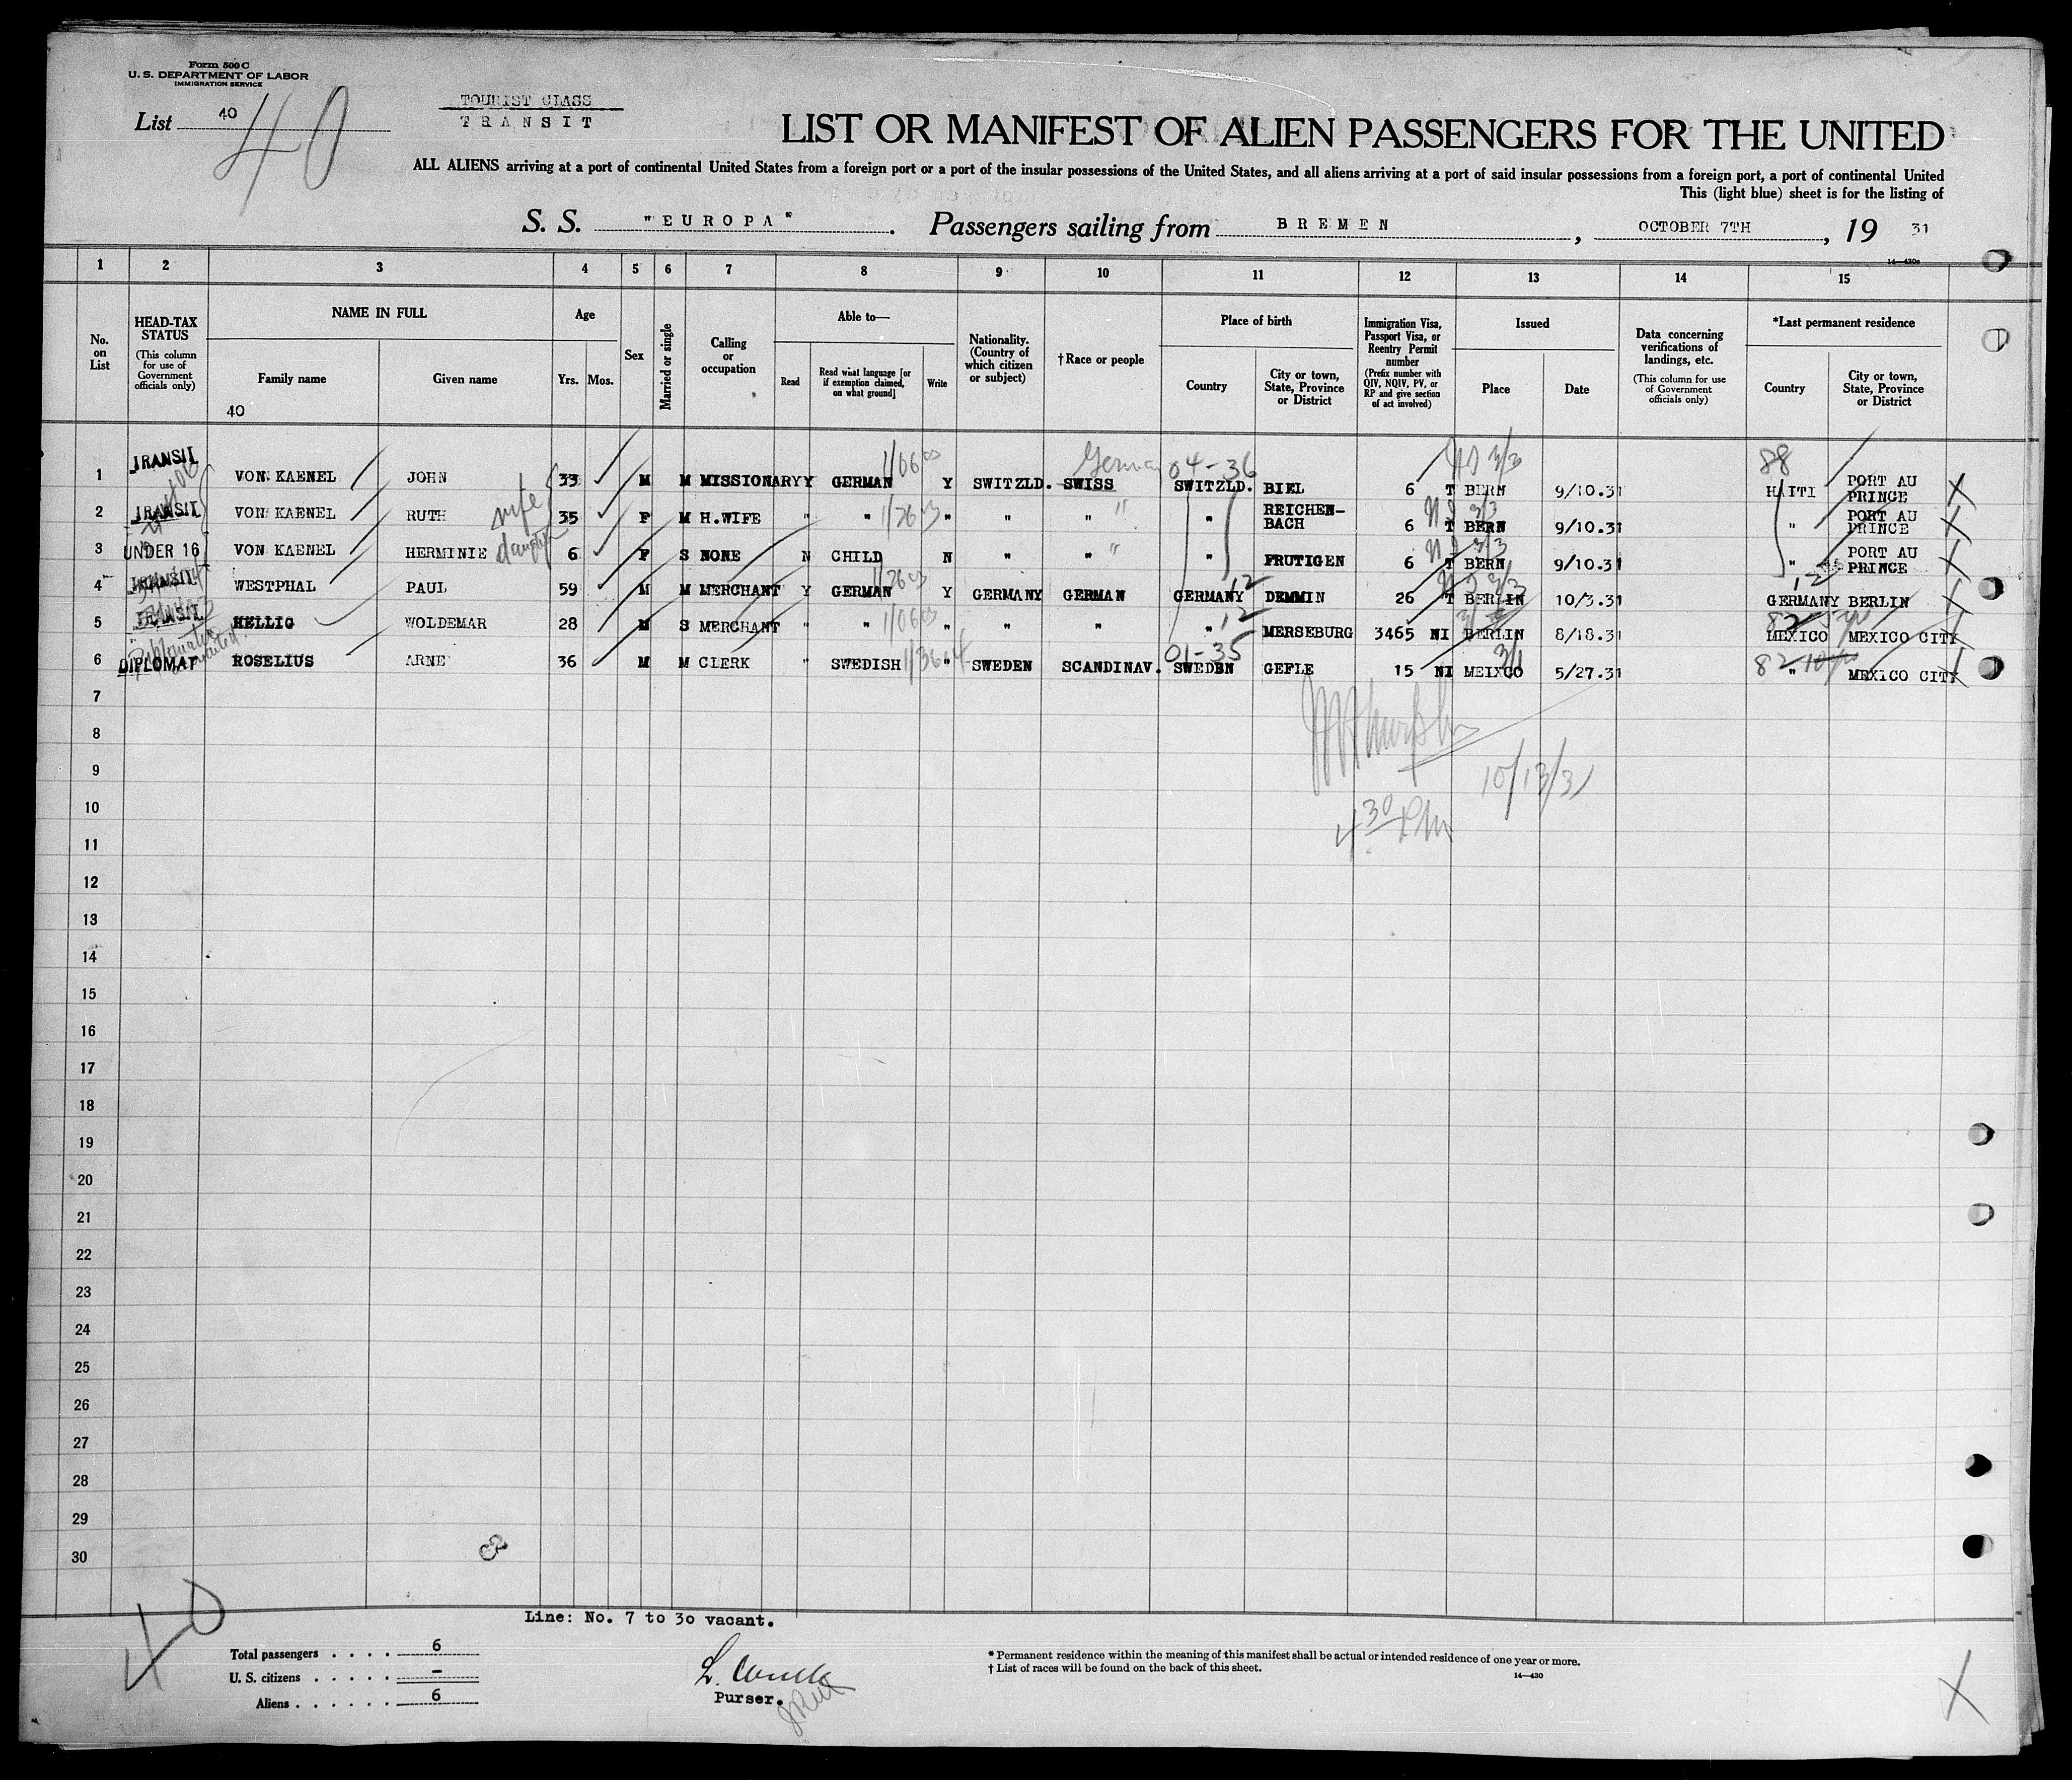 Form 500 C
U. S. DEPARTMENT OF LABOR
IMMIGRATION SERVICE
List 40
40
TOURIST CLASS
TRANSIT
LIST OR MANIFEST OF ALIEN PASSENGERS FOR THE UNITED
ALL ALIENS arriving at a port of continental United States from a foreign port or a port of the insular possessions of the United States, and all aliens arriving at a port of said insular possessions from a foreign port, a port of continental United
This (light blue) sheet is for the listing of
S. S. "EUROPA". Passengers sailing from BREMEN, OCTOBER 7TH, 19 31
14—430a
1 2 3 4 5 6 7 8 9 10 11 12 13 14 15
No. on List
HEAD-TAX STATUS (This column for use of Government officials only)
NAME IN FULL
Family name
Given name
40
Age
Yrs. Mos.
Sex
Married or single
Calling or occupation
Able to—
Read
Read what language [or if exemption claimed, on what ground]
Write
Nationality. (Country of which citizen or subject)
† Race or people
Place of birth
Country
City or town, State, Province or District
Immigration Visa, Passport Visa, or Reentry Permit number (Prefix number with QIV, NQIV, PV, or RP and give section of act involved)
Issued
Place
Date
Data concerning verifications of landings, etc. (This column for use of Government officials only)
*Last permanent residence
Country
City or town, State, Province or District
German 04-36 88
1 TRANSIT VON KAENEL JOHN 33 M M MISSIONARY Y GERMAN Y SWITZLD. SWISS SWITZLD. BIEL 6 T BERN 9/10.31 HAITI PORT AU PRINCE
2 TRANSIT VON KAENEL RUTH wife 35 F M H.WIFE " " " " " " REICHEN-BACH 6 T BERN 9/10.31 " PORT AU PRINCE
3 UNDER 16 VON KAENEL HERMINIE daughter 6 F S NONE N CHILD N " " " FRUTIGEN 6 T BERN 9/10.31 " PORT AU PRINCE
4 TRANSIT WESTPHAL PAUL 59 M M MERCHANT Y GERMAN Y GERMANY GERMAN GERMANY 12 DEMMIN 26 T BERLIN 10/3.31 GERMANY BERLIN
5 TRANSIT HELLIG WOLDEMAR 28 M S MERCHANT " " " " " " 12 MERSEBURG 3465 NI BERLIN 8/18.31 MEXICO MEXICO CITY
01-35
6 DIPLOMAT ROSELIUS ARNE 36 M M CLERK " SWEDISH " SWEDEN SCANDINAV. SWEDEN GEFLE 15 NI MEIXCO 5/27.31 " MEXICO CITY
7
8
9
10/13/31
10
4 30 PM
11
12
13
14
15
16
17
18
19
20
21
22
23
24
25
26
27
28
29
30
40
Line: No. 7 to 30 vacant.
Total passengers . . . . 6
U. S. citizens . . . . . -
Aliens . . . . . . 6
Purser.
* Permanent residence within the meaning of this manifest shall be actual or intended residence of one year or more.
† List of races will be found on the back of this sheet.
14—430